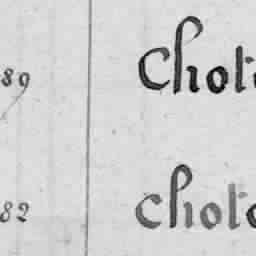 89 Chot
82 chot